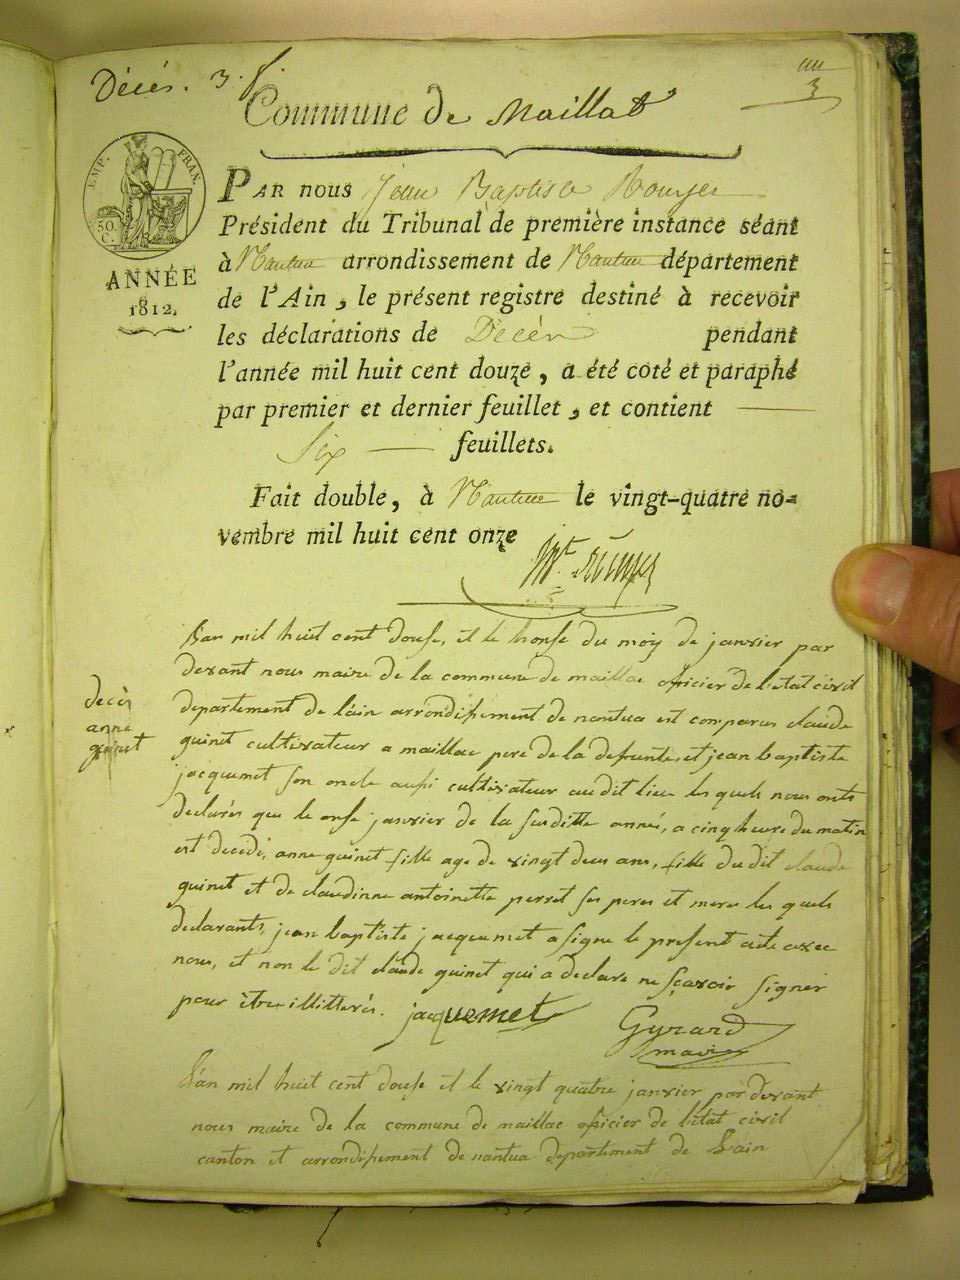 Décès. 3. f.
3
Commune de Maillat
EMP. FRAN.
50. C.
ANNÉE
1812.
PAR NOUS Jean Baptiste Rouyer
Président du Tribunal de première instance séant
à Nantua arrondissement de Nantua département
de l'Ain, le présent registre destiné à recevoir
les déclarations de Décès pendant
l'année mil huit cent douze, a été coté et paraphé
par premier et dernier feuillet, et contient
Six feuillets.
Fait double, à Nantua le vingt-quatre no=
vembre mil huit cent onze
decès
anne
guinet
L'an mil huit cent douse, et le honse du moy de janvier par
devant nous maire de la commune de maillac oficier de l'etat civil
departement de l'ain arrondissement de nantua est comparus claude
guinet cultivateur a maillac pere de la defunte, et jean baptiste
jacquemet son oncle aussi cultivateur au dit lieu les quels nous onts
declarés que le onse janvier de la susditte année, a cinq heure du matin
est decedé, anne guinet fille age de vingt deux ans, fille du dit claude
guinet et de claudinne antoinette perret ses peres et meres les quels
declarants, jean baptiste jacquemet a signe le present acte avec
nous, et non le dit claude guinet qui a declare ne sçavoir signer
pour être illitterés. jacquemet
Gyrard
maire
L'an mil huit cent douse et le vingt quatre janvier par devant
nous maire de la commune de maillac oficier de l'etat civil
canton et arrondissement de nantua departement de L'ain